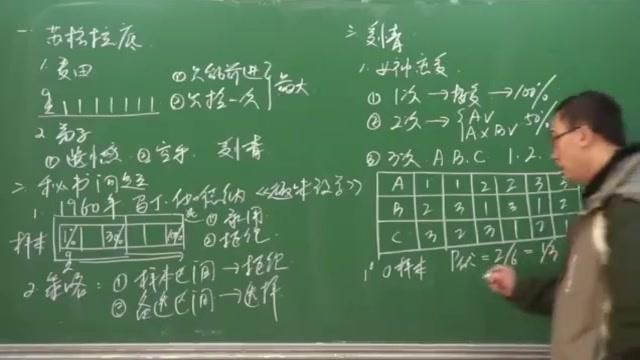 一、苏格拉底
1.麦田
①只能前进
②只捡一次
最大
2.弟子
① ②空手
二、秘书问题
1. 1960年 马丁·加德纳《趣味数学》
样本
1% 3%
①录用
②拒绝
2.策略：①样本区间→拒绝
②备选区间→选择
三、
1.女神恋爱
①1次→接受→100%
②2次→{A√ A×B√ 50%
③3次 A.B.C 1.2.
A 1 1 2 2 3 3
B 2 3 1 3 1 2
C 3 2 3 1 2
1° 0样本 P = 2/6 = 1/3